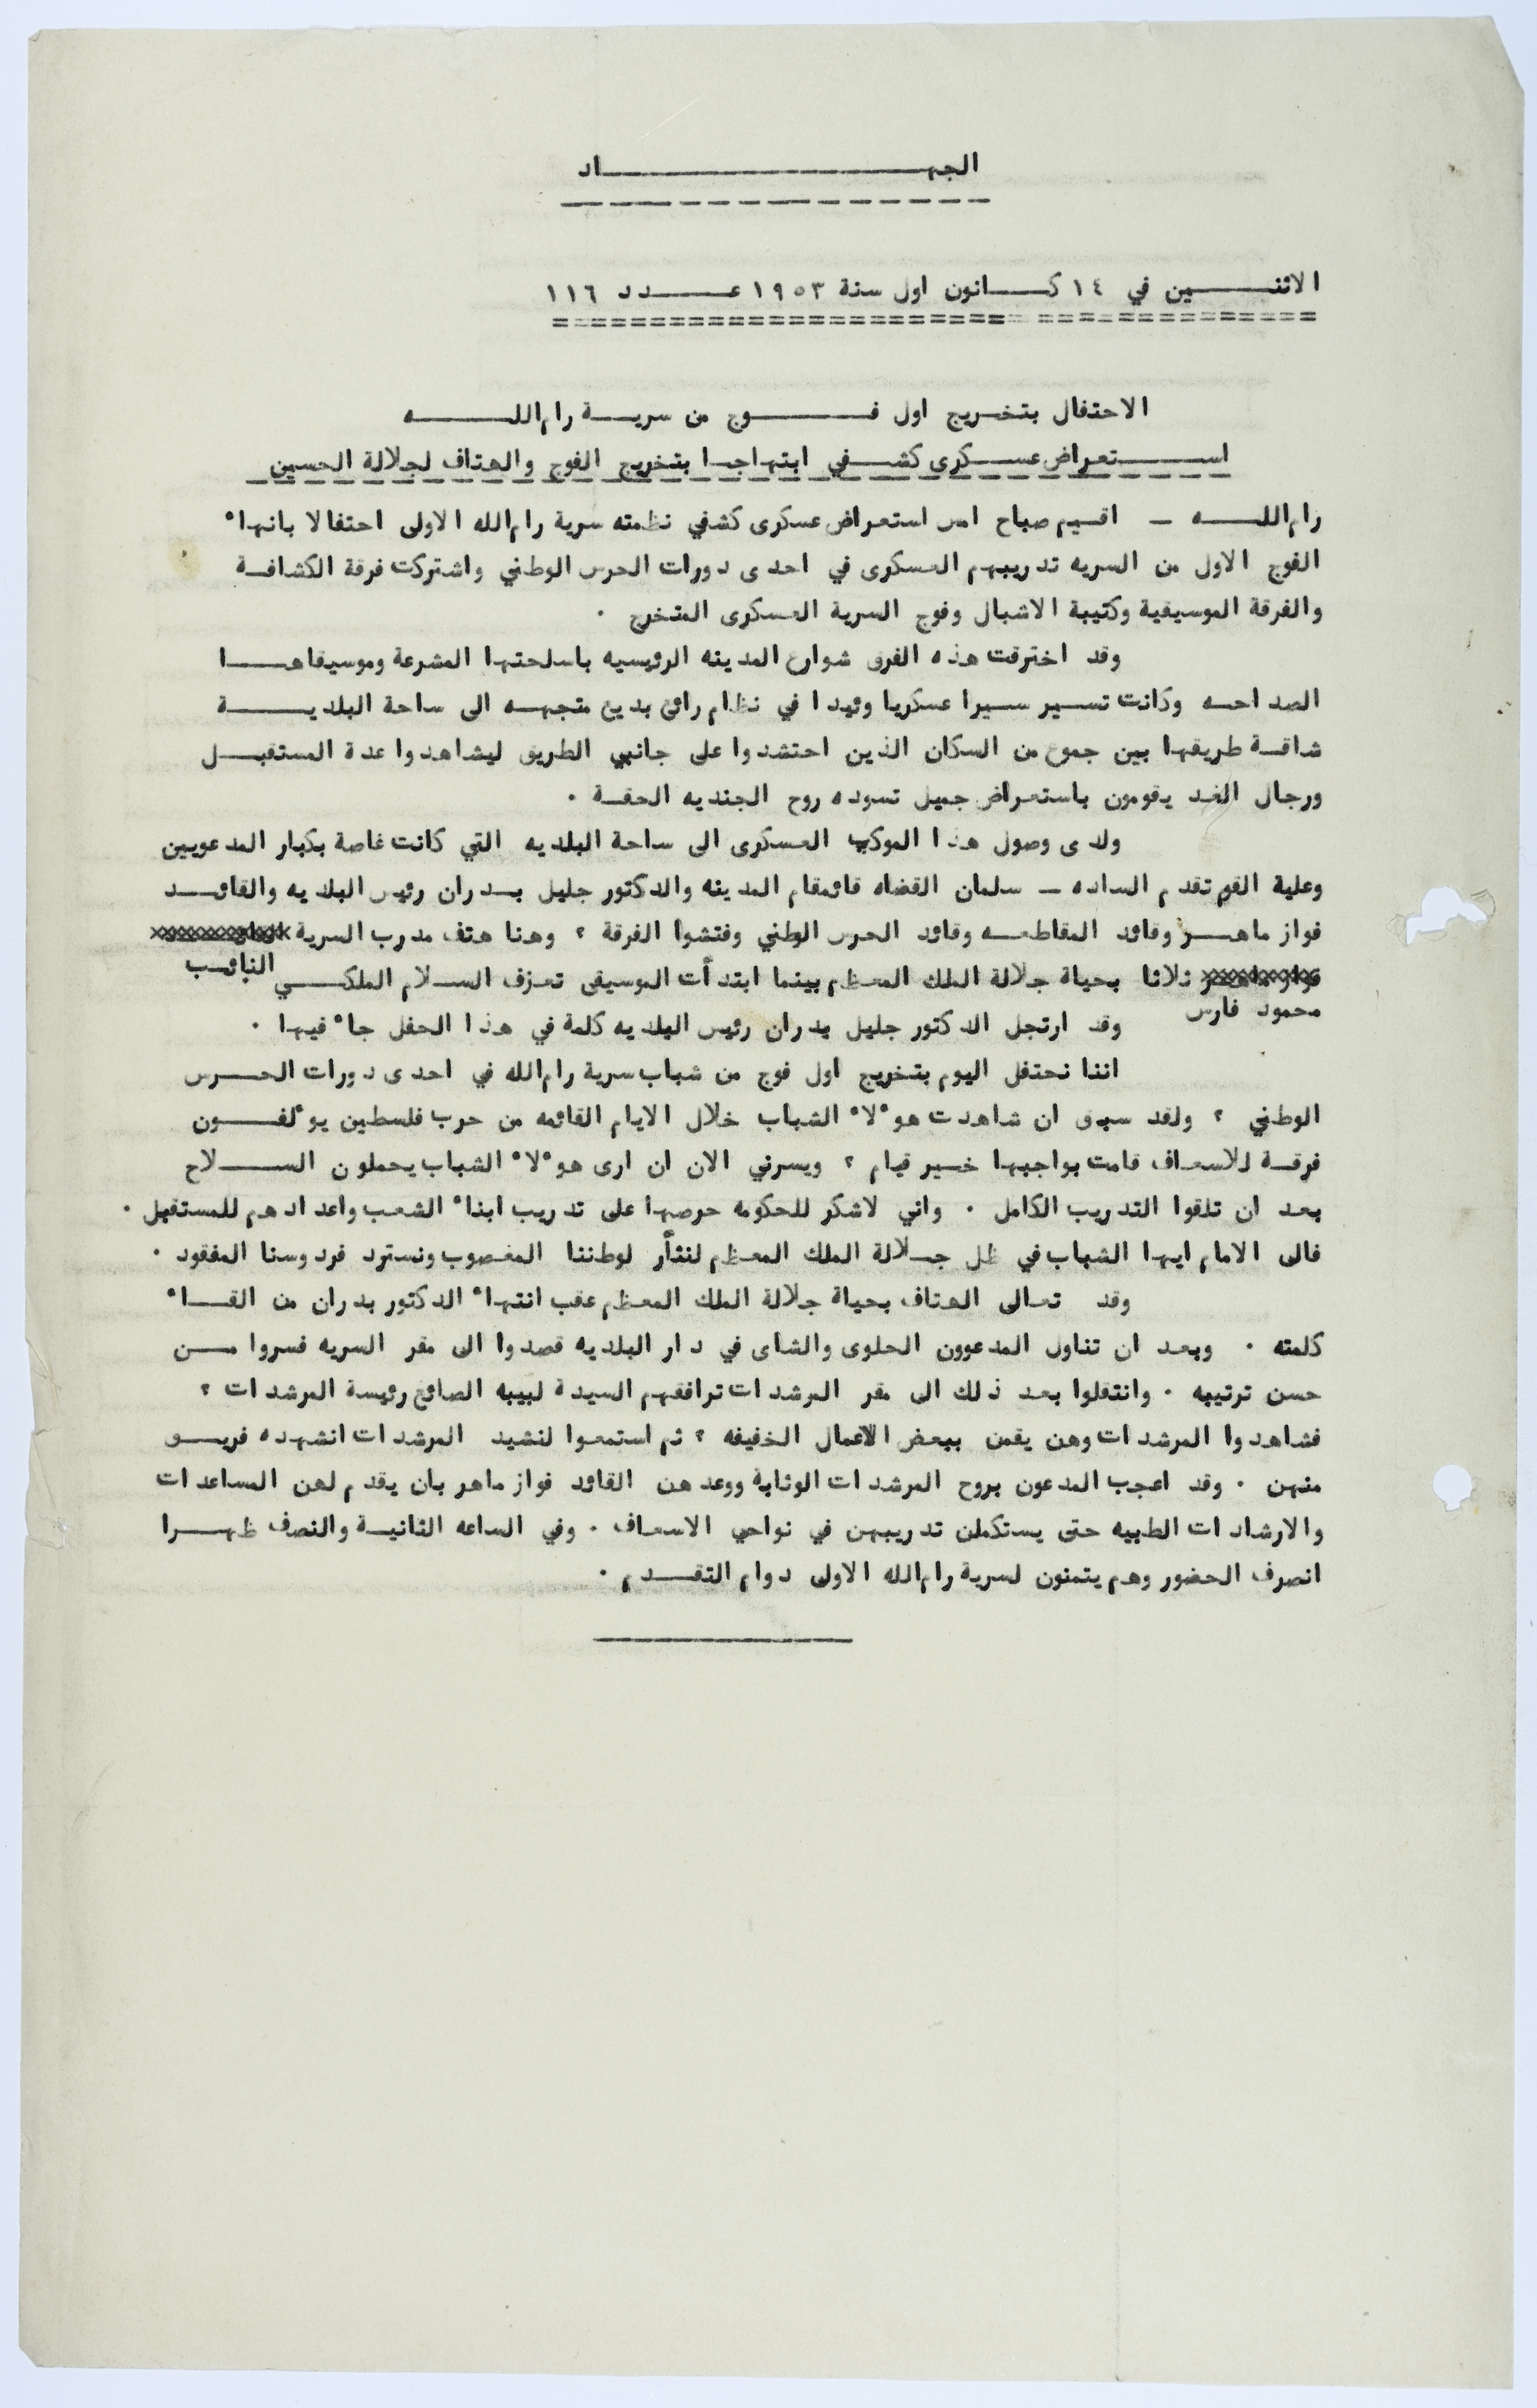 الجهـــــــــــــاد
الاثنـــــين في ١٤ كـــانون اول سنة ١٩٥٣ عـــــدد ١١٦
الاحتفال بتخريج اول فـــــوج من سريـــة رام اللـــــه
اســـــتعراض عســـكرى كشـــفي ابتهاجـا بتخريج الفوج والهتاف لجلالة الحسين
رام اللـــــه ـ اقـيم صباح امس استعراض عسكرى كشفي نظمته سرية رام الله الاولى احتفالا بانهاء
الفوج الاول من السريه تدريبهم العسكرى في احدى دورات الحرس الوطني واشتركت فرقة الكشافـة
والفرقة الموسيقية وكتيبة الاشبال وفوج السرية العسكرى المتخرج ٠
وقد اخترقت هذه الفرق شوارع المدينه الرئيسيه باسلحتها المشرعة وموسيقاهـــا
الصداحـه وكانت تسـير سـيرا عسكريا وئيدا في نظام رائع بديع متجهـه الى ساحة البلديـــــة
شاقـة طريقها بين جموع من السكان الذين احتشدوا على جانبي الطريق ليشاهدوا عدة المستقبـــل
ورجال الغـد يقومون باستعراض جميل تسوده روح الجنديه الحقـة ٠
ولدى وصول هذا الموكب العسكرى الى ساحة البلديه التي كانت غاصة بكبار المدعويين
وعلية القوم تقدم الساده ـ سلمان القضاه قائمقام المدينه والدكتور جليل بــدران رئيس البلديه والقائـــد
فواز ماهـــر وقائد المقاطعـه وقائد الحرس الوطني وفتشوا الفرقة ؟ وهنا هتف مدرب السرية
النائـب
ثلاثا بحياة جلالة الملك المعظم بينما ابتدأت الموسيقى تعزف السـلام الملكـــي
محمود فارس
وقد ارتجل الدكتور جليل بدران رئيس البلديه كلمة في هذا الحفل جاء فيها ٠
اننا نحتفل اليوم بتخريج اول فوج من شباب سرية رام الله في احدى دورات الحـــرس
الوطني ؟ ولقد سبق ان شاهدت هوءلاء الشباب خلال الايام القائمه من حرب فلسطين يوءلفـــون
فرقـة للاسعاف قامت بواجبها خـير قيام ؟ ويسرني الان ان ارى هوءلاء الشباب يحملون الســـلاح
بعد ان تلقوا التدريب الكامل ٠ واني لاشكر للحكومه حرصها على تدريب ابناء الشعب واعدادهم للمستقبل ٠
فالى الامام ايها الشباب في ظل جـلالة الملك المعظم لنثأر لوطننا المغصوب ونسترد فردوسنا المفقود ٠
وقد تعالى الهتاف بحياة جلالة الملك المعظم عقب انتهاء الدكتور بدران من القـــاء
كلمته ٠ وبعد ان تناول المدعوون الحلوى والشاى في دار البلديه قصدوا الى مقر السريه فسروا مـــن
حسن ترتيبه ٠ وانتقلوا بعد ذلك الى مقر المرشدات ترافقهم السيدة لبيبه الصائغ رئيسة المرشدات ؟
فشاهدوا المرشدات وهن يقمن ببعض الاعمال الخفيفه ؟ ثم استمعوا لنشيد المرشدات انشهده فريـــق
منهن ٠ وقد اعجب المدعون بروح المرشدات الوثابة ووعدهن القائد فواز ماهر بان يقدم لهن المساعدات
والارشادات الطبيه حتى يستكملن تدريبهن في نواحي الاسعاف ٠ وفي الساعه الثانيـة والنصف ظهـــرا
انصرف الحضور وهم يتمنون لسرية رام الله الاولى دوام التقـــدم ٠